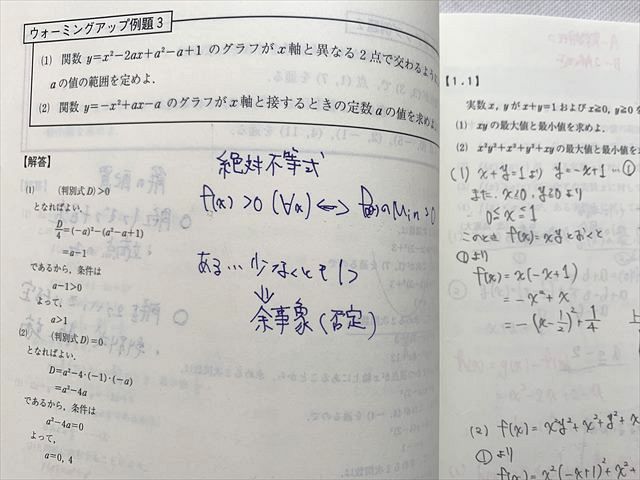 ウォーミングアップ例題 3
(1) 関数 y=x²-2ax+a²-a+1 のグラフが x 軸と異なる 2 点で交わるように
a の値の範囲を定めよ.
(2) 関数 y=-x²+ax-a のグラフが x 軸と接するときの定数 a の値を求めよ.
【解答】
(1) (判別式 D)>0
となればよい.
D/4=(-a)²-(a²-a+1)
=a-1
であるから, 条件は
a-1>0
よって,
a>1
(2) (判別式 D)=0
となればよい.
D=a²-4・(-1)・(-a)
=a²-4a
であるから, 条件は
a²-4a=0
よって,
a=0, 4
絶対不等式
f(x)>0 (∀x) ⟺ f(x)のMin>0
ある… 少なくとも1つ
↓
余事象(否定)
【1.1】
実数 x, y が x+y=1 および x≧0, y≧0
(1) xy の最大値と最小値を求めよ.
(2) x²y²+x²+y²+xy の最大値と最小
(1) x+y=1より y=-x+1 …①
また、x≧0, y≧0より
0≦x≦1
このとき f(x)=xyとおくと
①より
f(x)=x(-x+1)
=-x²+x
=-(x-1/2)²+1/4
(2) f(x)=x²y²+x²+y²+x
①より
f(x)=x²(-x+1)²+x²+